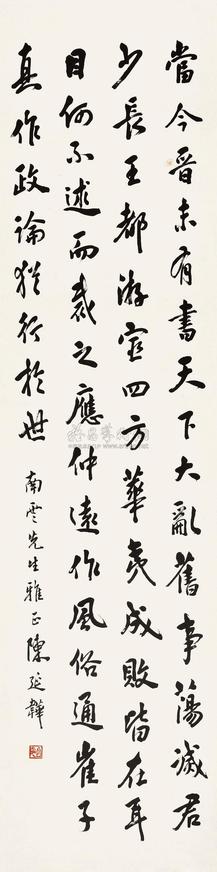 當今晉未有書天下大亂舊事蕩滅君
少長王都游宦四方華夷成敗皆在耳
目何不述而裁之應仲遠作風俗通崔子
真作政論猶行於世
南雲先生雅正陳延韡